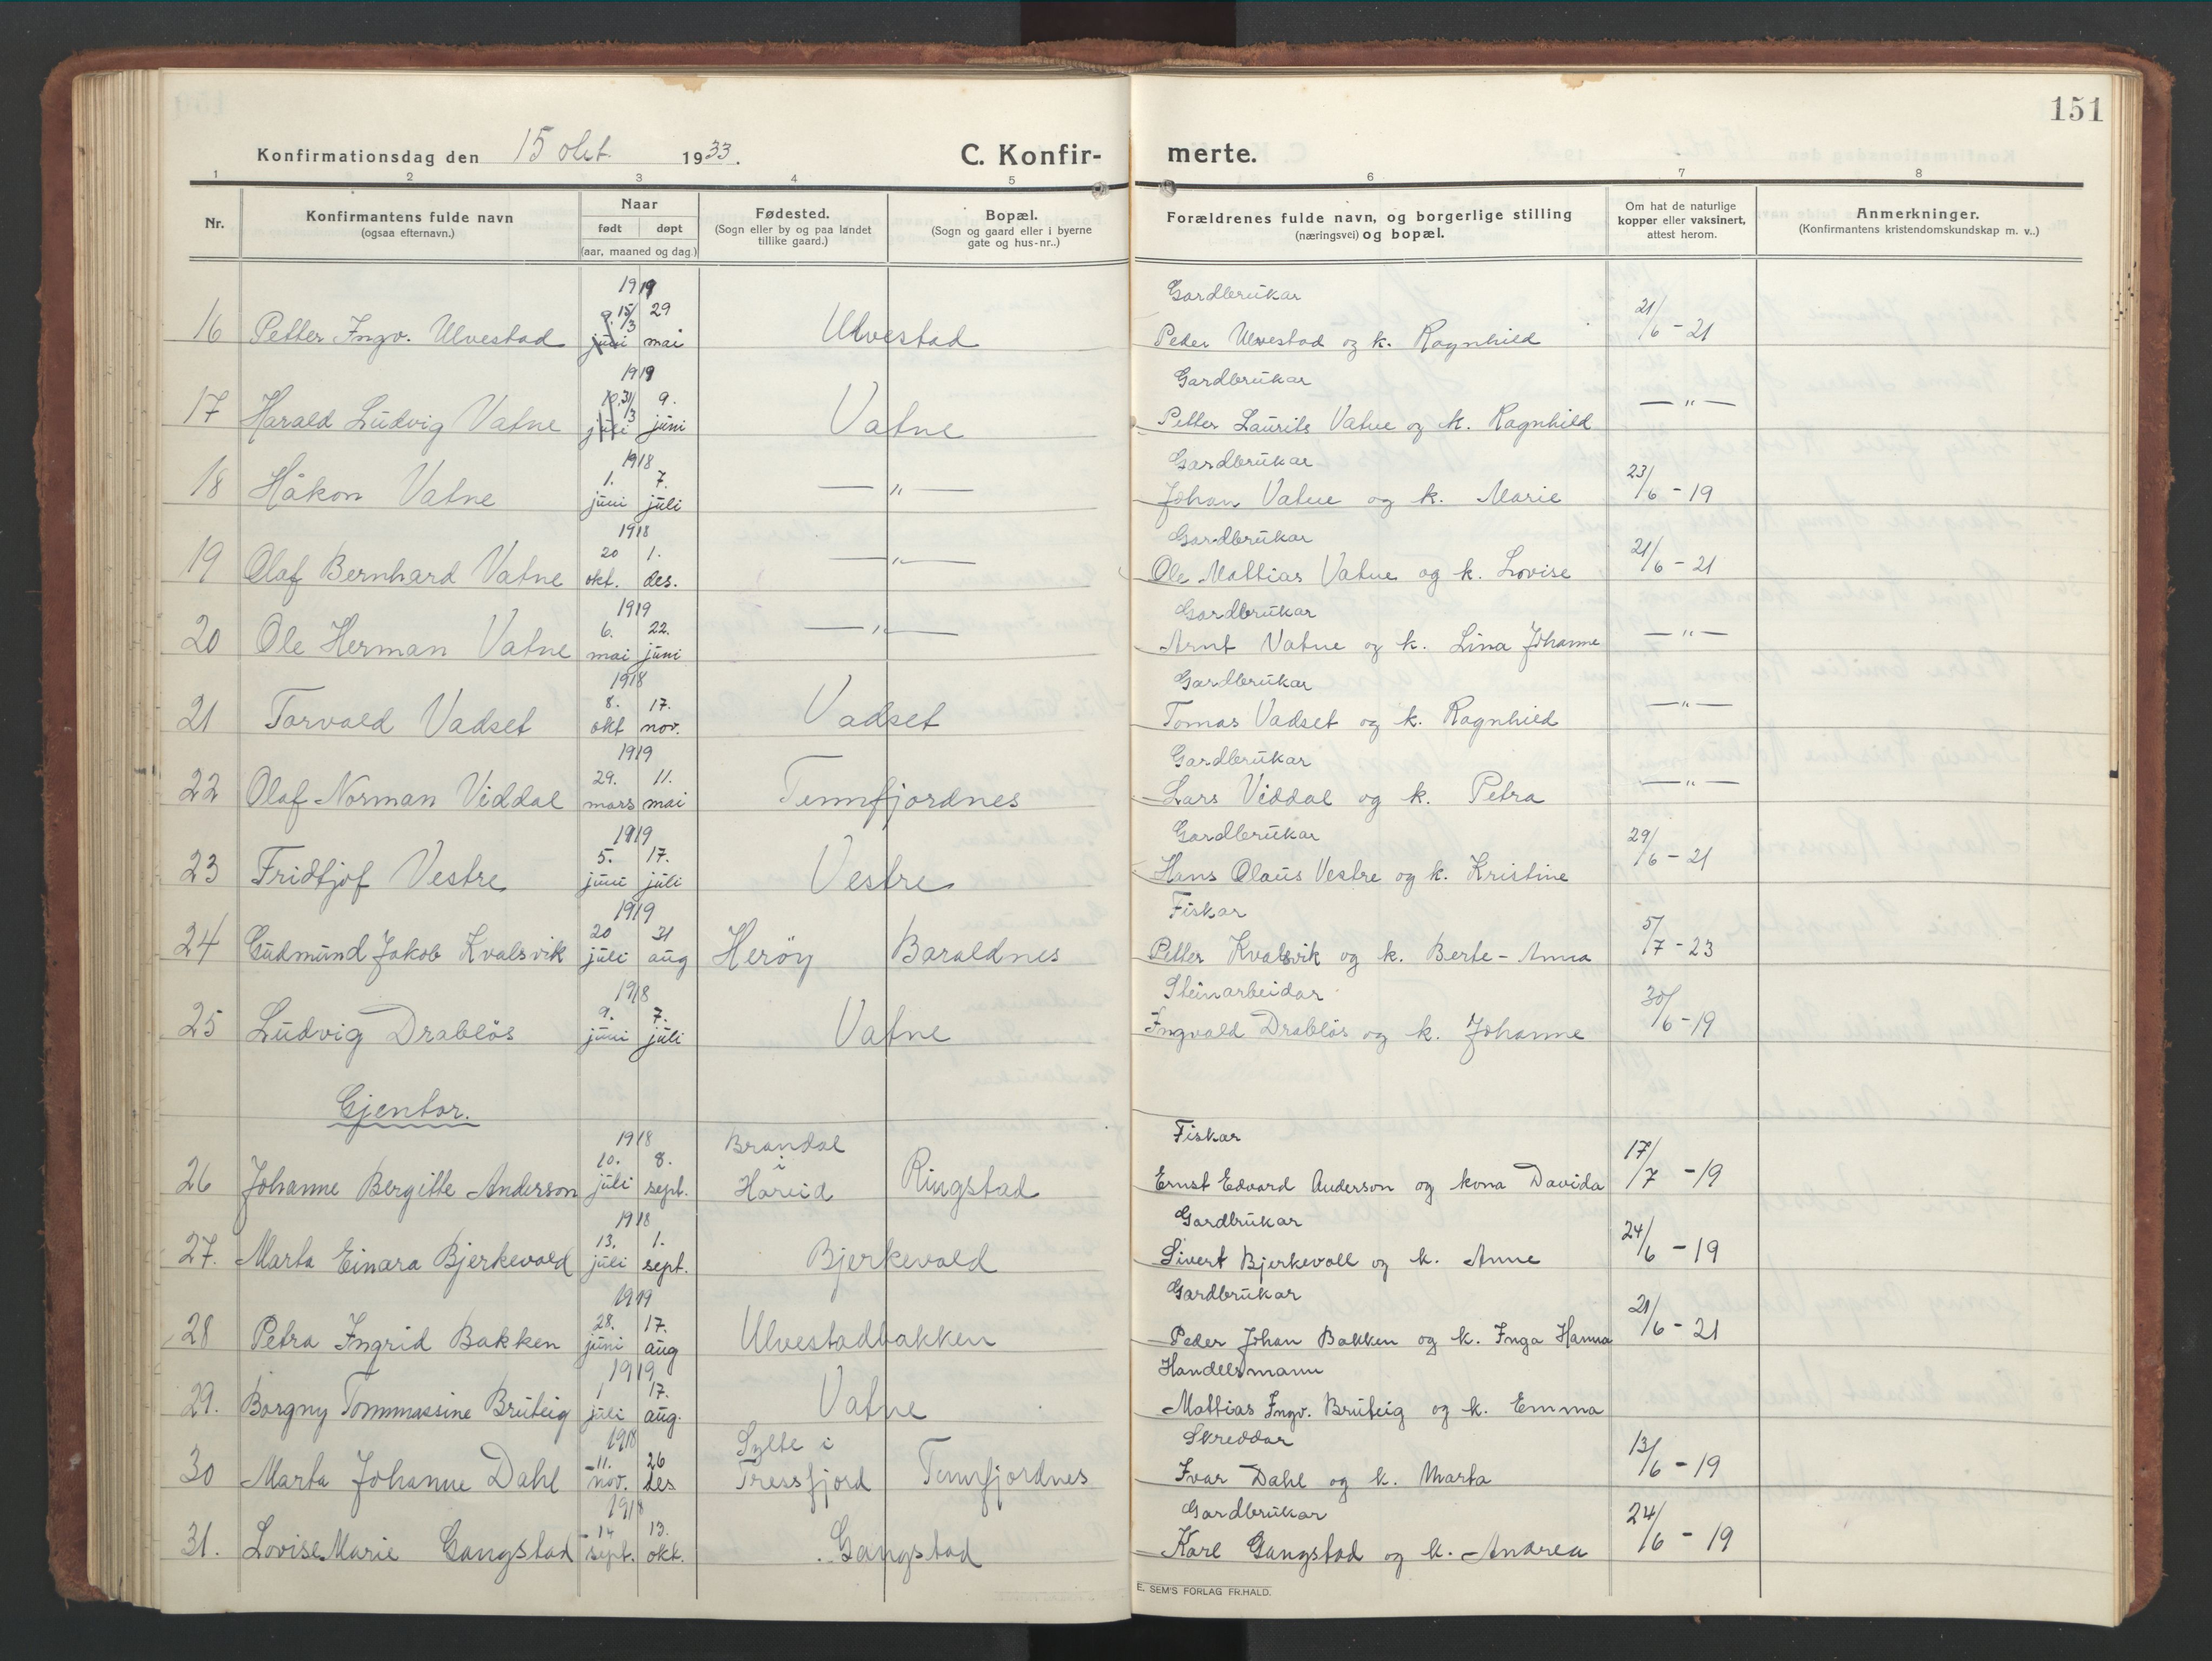 151
Konfirmationsdag den 15 okt. 1933.
C. Konfirmerte.
1 2 3 4 5 6 7 8
Nr.
Konfirmantens fulde navn
(ogsaa efternavn.)
Naar
født døpt
(aar, maaned og dag)
Fødested.
(Sogn eller by og paa landet
tillike gaard.)
Bopæl.
(Sogn og gaard eller i byerne
gate og hus-nr..)
Forældrenes fulde navn, og borgerlige stilling
(næringsvei) og bopæl.
Om hat de naturlige
kopper eller vaksinert,
attest herom.
Anmerkninger.
(Konfirmantens kristendomskundskap m. v..)
1919 Gardbrukar
16 Petter Ingv. Ulvestad 9. juni 15/3 29 mai Ulvestad Peder Ulvestad og k. Ragnhild 21/6 - 21
1919 Gardbrukar
17 Harald Ludvig Vatne 10. juli 31/3 9. juni Vatne Petter Laurits Vatne og k. Ragnhild — " —
1918 Gardbrukar
18 Håkon Vatne 1. juni 7. juli — " — Johan Vatne og k. Marie 23/6 - 19
1918 Gardbrukar
19 Olaf Bernhard Vatne 20 okt. 1. des. — " — Ole Mattias Vatne og k. Lovise 21/6 - 21
1919 Gardbrukar
20 Ole Herman Vatne 6. mai 22. juni — " — Arnt Vatne og k. Lina Johanne — " —
1918 Gardbrukar
21 Torvald Vadset 8. okt 17. nov. Vadset Tomas Vadset og k. Ragnhild — " —
1919 Gardbrukar
22 Olaf Norman Viddal 29. mars 11. mai Tennfjordnes Lars Viddal og k. Petra — " —
1919 Gardbrukar
23 Fridtjof Vestre 5. juni 17. juli Vestre Hans Olaus Vestre og k. Kristine 29/6 - 21
1919 Fiskar
24 Gudmund Jakob Kvalsvik 20 juli 31 aug Herøy Baraldnes Petter Kvalsvik og k. Berte-Anna 5/7 - 23
1918 Steinarbeidar
25 Ludvig Drabløs 9. juni 7. juli Vatne Ingvald Drabløs og k. Johanne 30/6 - 19
Gjentor.
1918 Brandal i Fiskar
26 Johanne Bergitte Anderson 10. juli 8. sept. Hareid Ringstad Ernst Edvard Anderson og kona Davida 17/7 - 19
1918 Gardbrukar
27. Marta Einara Bjerkevold 13. juli 1. sept. Bjerkevold Sivert Bjerkevoll og k. Anne 24/6 - 19
1919 Gardbrukar
28 Petra Ingrid Bakken 28. juni 17. aug Ulvestadbakken Peder Johan Bakken og k. Inga Hanna 21/6 - 21
1919 Handelsmann
29. Borgny Tommassine Bruteig 1 juli 17. aug. Vatne Mattias Ingv. Bruteig og k. Emma
1918 Sylte i Skreddar
30 Marta Johanne Dahl 11. nov. 26 des Tressfjord Tennfjordnes Ivar Dahl og k. Marta 13/6 - 19
1918 Gardbrukar
31. Lovise Marie Gangstad 14 sept. 13. okt. Gangstad Karl Gangstad og k. Andrea 24/6 - 19
E. SEM'S FORLAG FR.HALD.